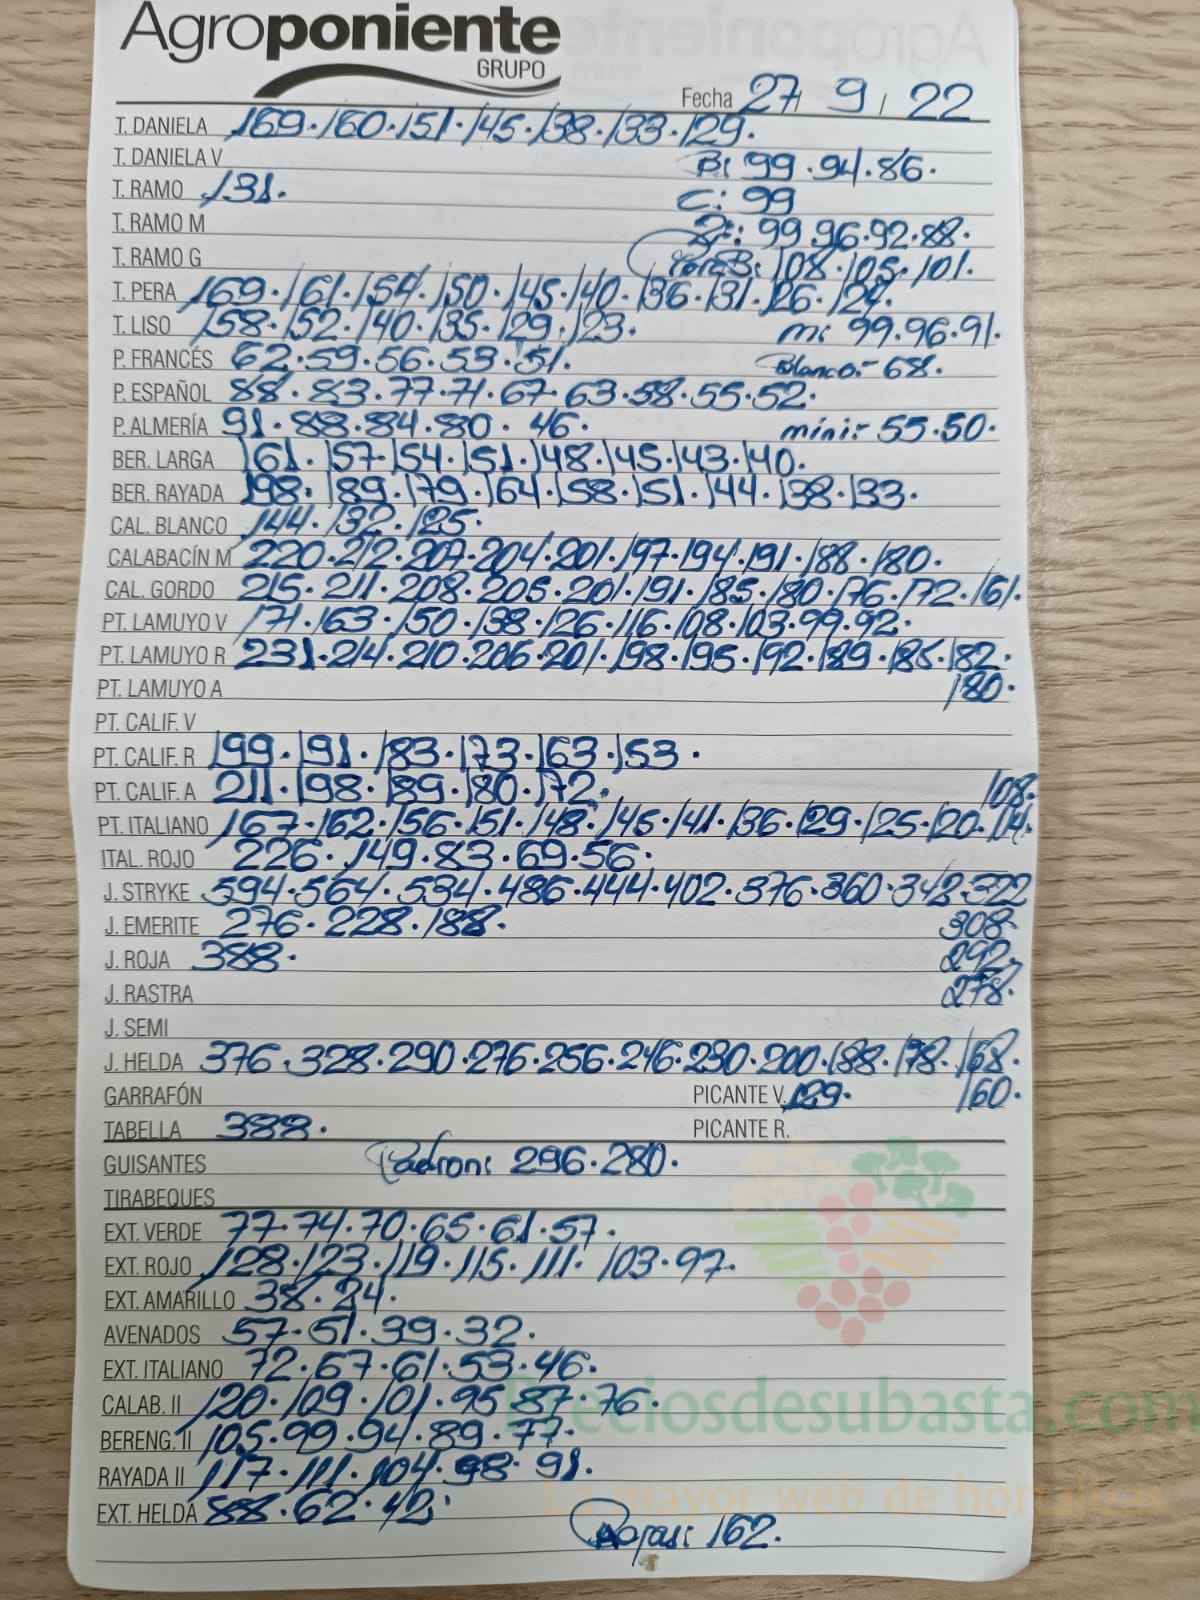 Agroponiente
GRUPO
Fecha 27 / 9 / 22
T. DANIELA 169·160·151·145·138·133·129.
T. DANIELA V B: 99·94·86.
T. RAMO 131. C: 99
T. RAMO M 2ª: 99.96.92.88.
T. RAMO G 108·105·101.
T. PERA 169·161·154·150·145·140·136·131·126·124.
T. LISO 158·152·140·135·129·123. m: 99.96.91.
P. FRANCÉS 62·59·56·53·51. Blanco:- 68.
P. ESPAÑOL 88·83·77·71·67·63·58·55·52.
P. ALMERÍA 91·88·84·80·46. mini:- 55·50.
BER. LARGA 161·157·154·151·148·145·143·140.
BER. RAYADA 198·189·179·164·158·151·144·138·133.
CAL. BLANCO 144·132·125.
CALABACÍN M 220·212·207·204·201·197·194·191·188·180.
CAL. GORDO 215·211·208·205·201·191·185·180·176·172·161.
PT. LAMUYO V 171·163·150·138·126·116·108·103·99·92.
PT. LAMUYO R 231·214·210·206·201·198·195·192·189·185·182.
PT. LAMUYO A 180.
PT. CALIF. V
PT. CALIF. R 199·191·183·173·163·153.
PT. CALIF. A 211·198·189·180·172. 108.
PT. ITALIANO 167·162·156·151·148·145·141·136·129·125·120·114.
ITAL. ROJO 226·149·83·69·56.
J. STRYKE 594·564·534·486·444·402·376·360·342·322
J. EMERITE 276·228·188. 308.
J. ROJA 388. 292.
J. RASTRA 278.
J. SEMI
J. HELDA 376·328·290·276·256·246·230·200·188·178·168.
GARRAFÓN PICANTE V. 129. 160.
TABELLA 388. PICANTE R.
GUISANTES Padron: 296·280.
TIRABEQUES
EXT. VERDE 77·74·70·65·61·57.
EXT. ROJO 128·123·119·115·111·103·97.
EXT. AMARILLO 38·24.
AVENADOS 57·51·39·32.
EXT. ITALIANO 72·67·61·53·46.
CALAB. II 120·109·101·95·87·76.
Preciosdesubasta.com
BERENG. II 105·99·94·89·77.
RAYADA II 117·111·104·98·91.
La mayor web de hortalizas
EXT. HELDA 88·62·42.
Rojas: 162.